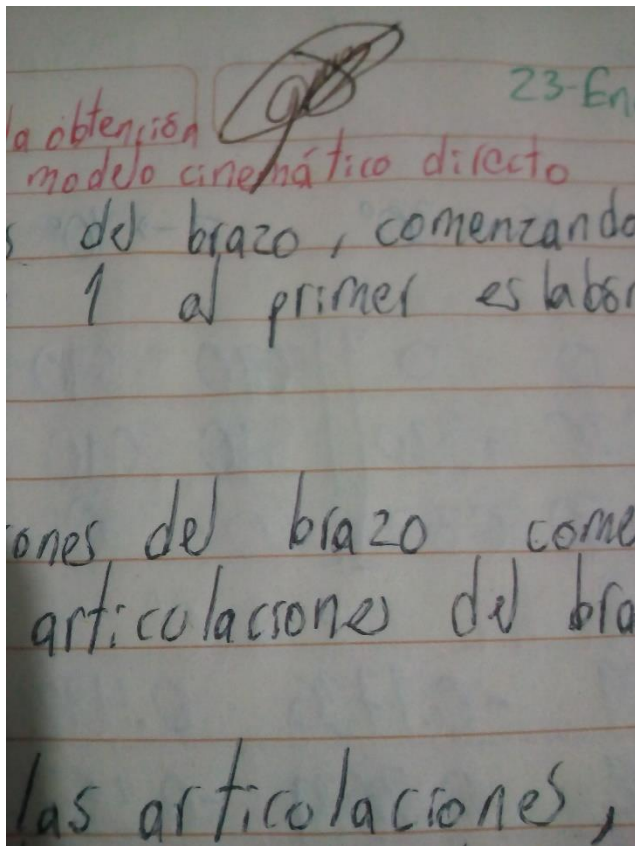 23-En
la obtención
modelo cinemático directo
s del brazo, comenzando
1 al primer eslabon
ones del brazo come
articulaciones del bra
las articolaciones,